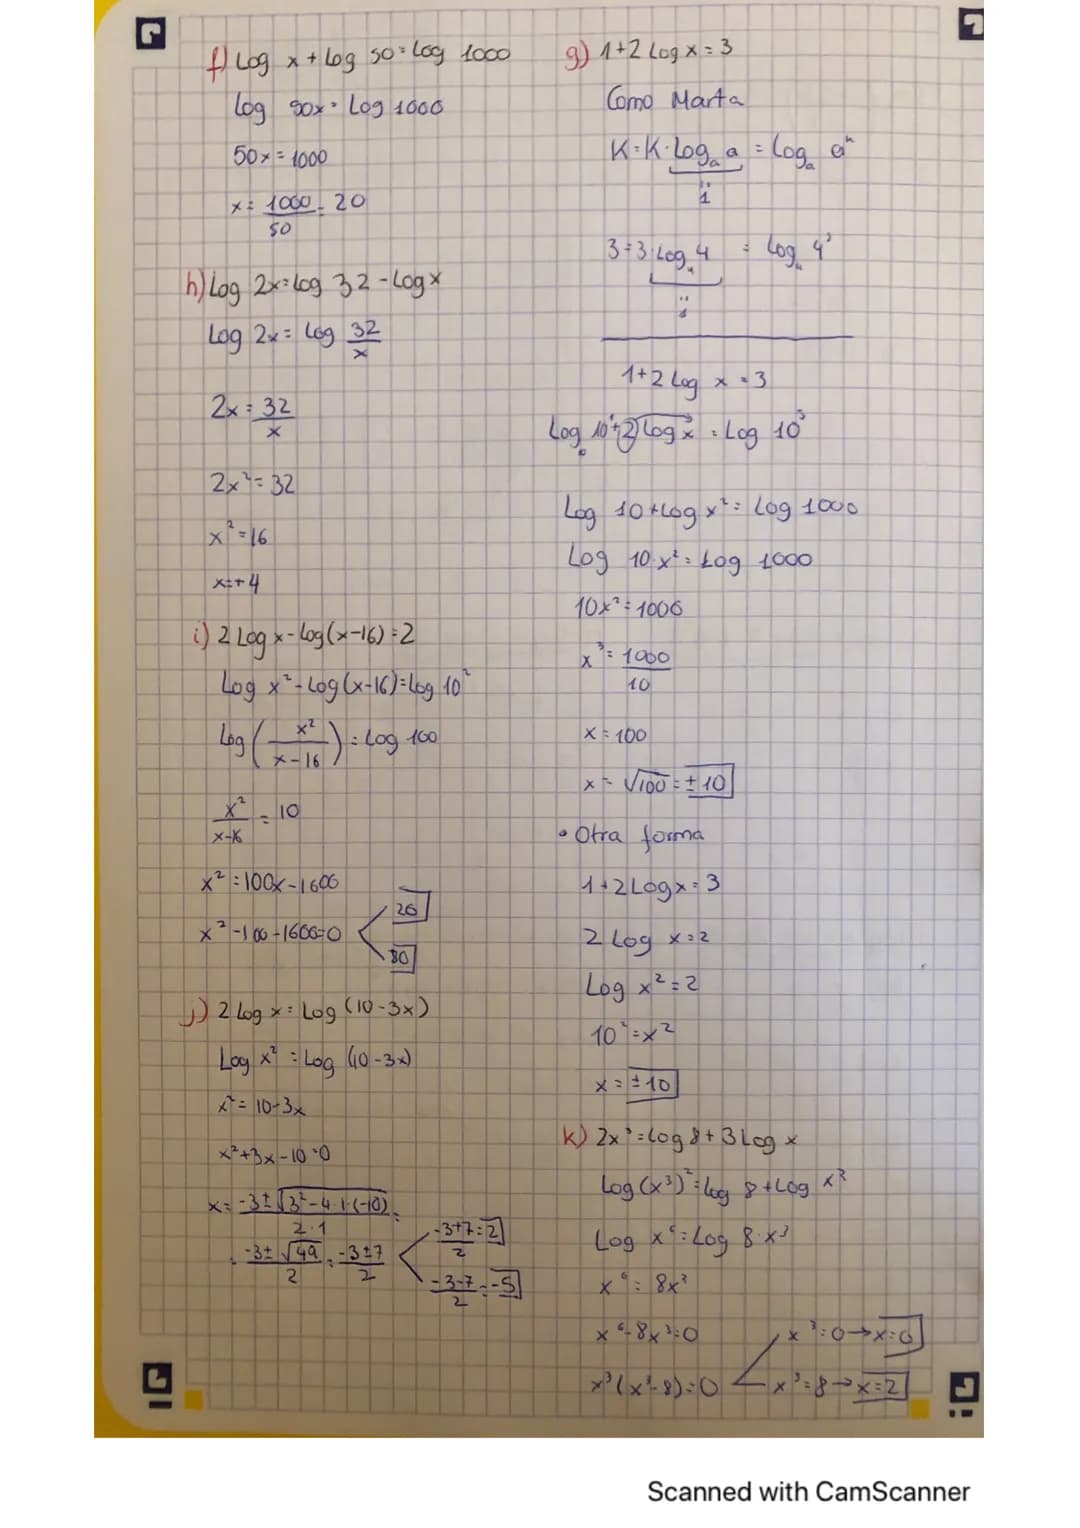 f) Log x + Log 50 = Log 1000
Log 50x = Log 1000
50x = 1000
x = 1000/50 = 20
h) Log 2x = Log 32 - Log x
Log 2x = Log 32/x
2x = 32/x
2x² = 32
x² = 16
x = +4
i) 2 Log x - Log (x-16) = 2
Log x² - Log (x-16) = Log 10²
Log (x²/(x-16)) = Log 100
x²/(x-16) = 10
x² = 100x - 1600
x² - 100 - 1600 = 0
20
80
j) 2 Log x = Log (10-3x)
Log x² = Log (10-3x)
x² = 10-3x
x² + 3x - 10 = 0
x = (-3 ± √(3² - 4·1·(-10)))/(2·1) =
= (-3 ± √49)/2 = (-3 ± 7)/2
(-3+7)/2 = 2
(-3-7)/2 = -5
g) 1 + 2 Log x = 3
Como Marta
K = K · Logₐ a = Logₐ aᵏ
1
3 = 3 · Log₄ 4 = Log₄ 4³
1
1 + 2 Log x = 3
Log 10¹ + 2 Log x = Log 10³
Log 10 + Log x² = Log 1000
Log 10·x² = Log 1000
10x² = 1000
x³ = 1000/10
x = 100
x = √100 = ±10
• Otra forma
1 + 2 Log x = 3
2 Log x = 2
Log x² = 2
10² = x²
x = ±10
k) 2x³ = Log 8 + 3 Log x
Log (x³)² = Log 8 + Log x³
Log x⁶ = Log 8·x³
x⁶ = 8x³
x⁶ - 8x³ = 0
x³ = 0 → x = 0
x³ (x³ - 8) = 0
x³ = 8 → x = 2
Scanned with CamScanner